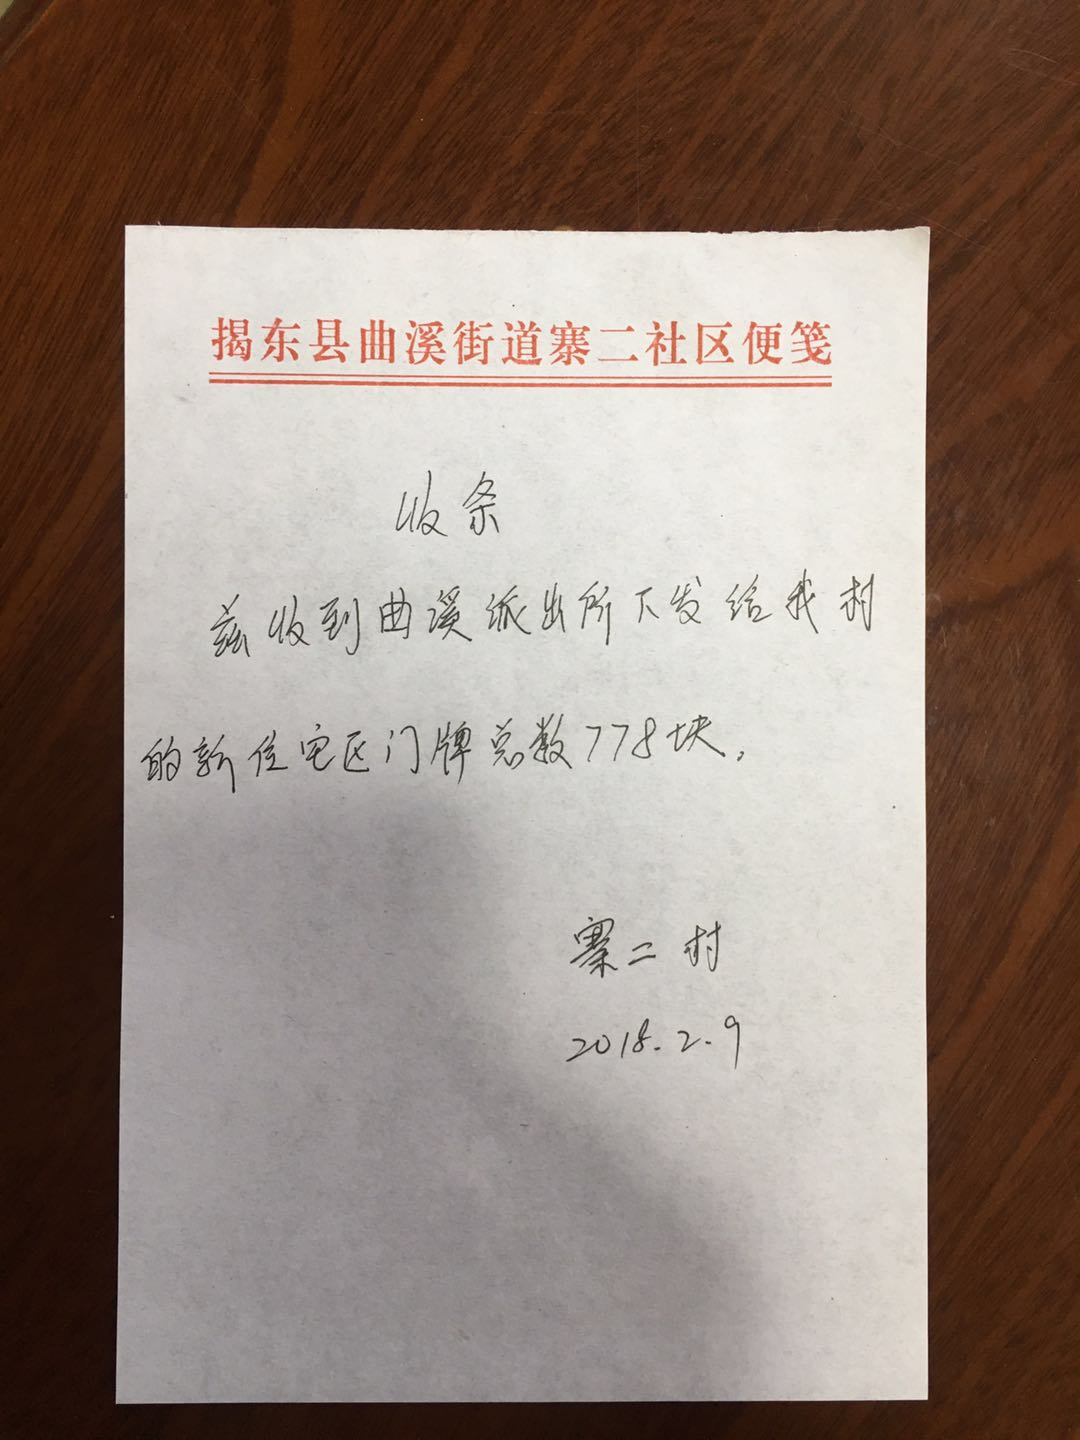 揭东县曲溪街道寨二社区便笺
收条
兹收到曲溪派出所下发给我村
的新住宅区门牌总数778块.
寨二村
2018.2.9